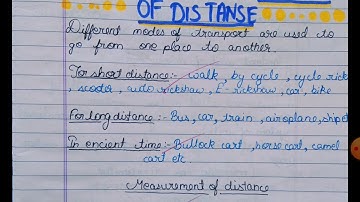 OF DISTANSE
Different modes of transport are used to
go from one place to another.
For short distance:- walk, by cycle, cycle rick
, scooter, auto rickshaw, E-rickshaw, car, bike
For long distance:- Bus, car, train, airoplane, ship et
In encient time:- Bullock cart, horse cart, camel
cart etc
Measurement of distance